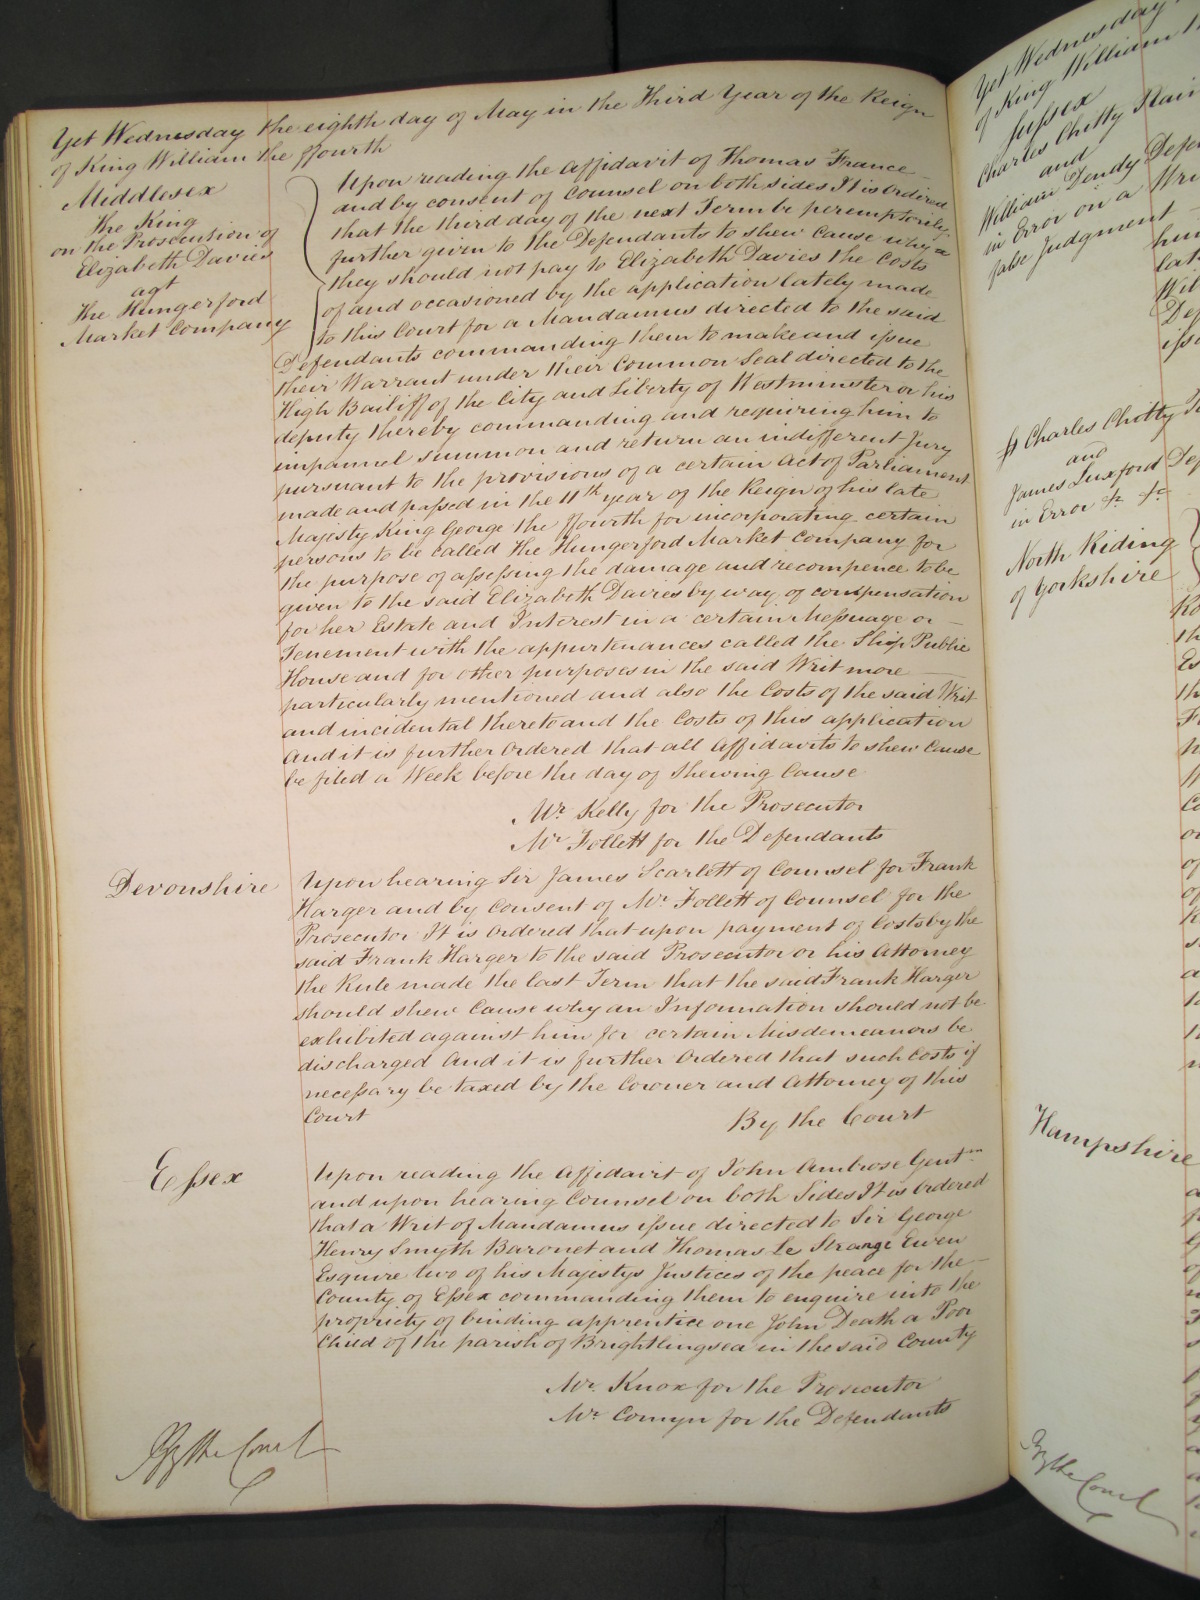 Yet Wednesday the eighth day of May in the Third Year of the Reign
of King William the ffourth
Middlesex
The King
on the Prosecution of
Elizabeth Davies
agt
The Hungerford
Market Company
Upon reading the Affidavit of Thomas France
and by consent of Counsel on both sides It is Ordered
that the third day of the next Term be peremptorily
further given to the Defendants to shew Cause why
they should not pay to Elizabeth Davies the Costs
of and occasioned by the application lately made
to this Court for a Mandamus directed to the said
Defendants commanding them to make and issue
their Warrant under their Common Seal directed to the
High Bailiff of the City and Liberty of Westminster or his
deputy thereby commanding and requiring him to
impannel summon and return an indifferent Jury
pursuant to the provisions of a certain Act of Parliament
made and passed in the 11th year of the Reign of his late
Majesty King George the ffourth for incorporating certain
persons to be called The Hungerford Market Company for
the purpose of assessing the damage and recompence to be
given to the said Elizabeth Davies by way of compensation
for her Estate and Interest in a certain Messuage or
Tenement with the appurtenances called the Ship Public
House and for other purposes in the said Writ more
particularly mentioned and also the Costs of the said Writ
and incidental thereto and the Costs of this application
And it is further Ordered that all Affidavits to shew Cause
be filed a Week before the day of shewing Cause
Mr. Kelly for the Prosecutor
Mr. Follett for the Defendants
Devonshire
Upon hearing Sir James Scarlett of Counsel for Frank
Harger and by Consent of Mr. Follett of Counsel for the
Prosecutor It is Ordered that upon payment of Costs by the
said Frank Harger to the said Prosecutor or his Attorney
the Rule made the last Term that the said Frank Harger
should shew Cause why an Information should not be
exhibited against him for certain Misdemeanors be
discharged And it is further Ordered that such Costs if
necessary be taxed by the Coroner and Attorney of this
Court
By the Court
Essex
Upon reading the Affidavit of John Ambrose Gentn.
and upon hearing Counsel on both Sides It is Ordered
that a Writ of Mandamus issue directed to Sir George
Henry Smyth Baronet and Thomas Le Strange Ewen
Esquire two of his Majestys Justices of the peace for the
County of Essex commanding them to enquire into the
propriety of binding apprentice one John Death a Poor
Child of the parish of Brightlingsea in the said County
Mr. Knox for the Prosecutor
Mr. Comyn for the Defendants
By the Court
Yet Wednesday
of King William
Sussex
Charles Chitty
and
William Dendy
in Error on a Wri
false Judgment
Charles Chitty
and
James Luxford
in Error
North Riding
of Yorkshire
Hampshire
By the Court